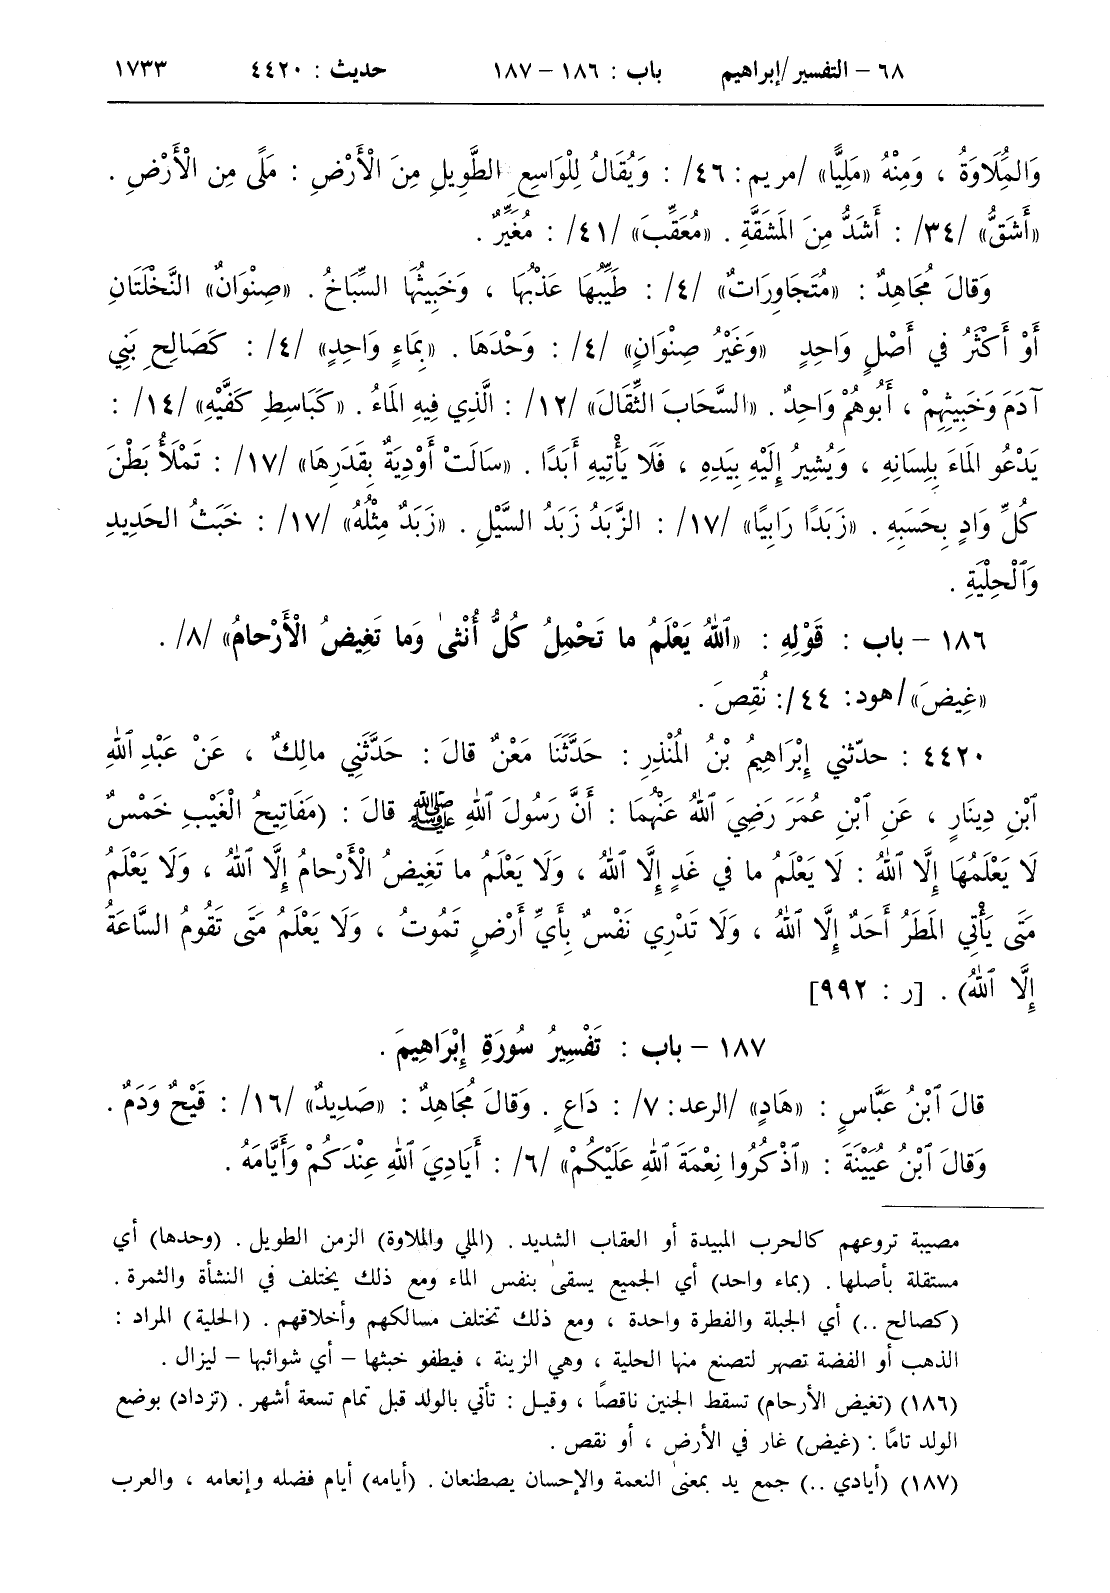 ٦٨ – التفسير/إبراهيم باب : ١٨٦ – ١٨٧ حديث : ٤٤٢٠ ١٧٣٣
وَالمُِلَاوَةُ ، وَمِنْهُ «مَلِيًّا» /مريم: ٤٦/ : وَيُقَالُ لِلْوَاسِعِ الطَّوِيلِ مِنَ الْأَرْضِ : مَلًى مِن الْأَرْضِ .
«أَشَقُّ» /٣٤/ : أَشَدُّ مِنَ المَشَقَّةِ . «مُعَقِّبَ» /٤١/ : مُغَيِّرٌ .
وَقالَ مُجَاهِدٌ : «مُتَجَاوِرَاتٌ» /٤/ : طَيِّبُهَا عَذْبُهَا ، وَخَبِيثُهَا السِّبَاخُ . «صِنْوَانٌ» النَّخْلَتَانِ
أَوْ أَكْثَرُ في أَصْلٍ وَاحِدٍ «وَغَيْرُ صِنْوَانٍ» /٤/ : وَحْدَهَا . «بِمَاءٍ وَاحِدٍ» /٤/ : كَصَالِحِ بَنِي
آدَمَ وَخَبِيثِهِمْ ، أَبُوهُمْ وَاحِدٌ . «السَّحَابَ الثِّقَالَ» /١٢/ : الَّذِي فِيهِ المَاءُ . «كَبَاسِطِ كَفَّيْهِ» /١٤/ :
يَدْعُو المَاءَ بِلِسَانِهِ ، وَيُشِيرُ إِلَيْهِ بِيَدِهِ ، فَلَا يَأْتِيهِ أَبَدًا . «سَالَتْ أَوْدِيَةٌ بِقَدَرِهَا» /١٧/ : تَمْلَأُ بَطْنَ
كُلِّ وَادٍ بِحَسَبِهِ . «زَبَدًا رَابِيًا» /١٧/ : الزَّبَدُ زَبَدُ السَّيْلِ . «زَبَدٌ مِثْلُهُ» /١٧/ : خَبَثُ الحَدِيدِ
وَٱلْحِلْيَةِ .
١٨٦ – باب : قَوْلِهِ : «ٱللهُ يَعْلَمُ ما تَحْمِلُ كُلُّ أُنْثىٰ وَما تَغِيضُ الْأَرْحامُ» /٨/ .
«غِيضَ»/هود: ٤٤/: نُقِصَ .
٤٤٢٠ : حدّثني إِبْرَاهِيمُ بْنُ المُنْذِرِ : حَدَّثَنَا مَعْنٌ قالَ : حَدَّثَنِي مالِكٌ ، عَنْ عَبْدِ ٱللهِ
ٱبْنِ دِينَارٍ ، عَنِ ٱبْنِ عُمَرَ رَضِيَ ٱللهُ عَنْهُمَا : أَنَّ رَسُولَ ٱللهِ ﷺ قالَ : (مَفَاتِيحُ الْغَيْبِ خَمْسٌ
لَا يَعْلَمُهَا إِلَّا ٱللهُ : لَا يَعْلَمُ ما في غَدٍ إِلَّا ٱللهُ ، وَلَا يَعْلَمُ ما تَغِيضُ الْأَرْحامُ إِلَّا ٱللهُ ، وَلَا يَعْلَمُ
مَتَى يَأْتِي المَطَرُ أَحَدٌ إِلَّا ٱللهُ ، وَلَا تَدْرِي نَفْسٌ بِأَيِّ أَرْضٍ تَمُوتُ ، وَلَا يَعْلَمُ مَتَى تَقُومُ السَّاعَةُ
إِلَّا ٱللهُ) . [ر : ٩٩٢]
١٨٧ – باب : تَفْسِيرُ سُورَةِ إِبْرَاهِيمَ .
قالَ ٱبْنُ عَبَّاسٍ : «هَادٍ» /الرعد: ٧/ : دَاعٍ . وَقالَ مُجَاهِدٌ : «صَدِيدٌ» /١٦/ : قَيْحٌ وَدَمٌ .
وَقالَ ٱبْنُ عُيَيْنَةَ : «ٱذْكُرُوا نِعْمَةَ ٱللهِ عَلَيْكُمْ» /٦/ : أَيَادِيَ ٱللهِ عِنْدَكُمْ وَأَيَّامَهُ .
مصيبة تروعهم كالحرب المبيدة أو العقاب الشديد . (الملي والملاوة) الزمن الطويل . (وحدها) أي
مستقلة بأصلها . (بماء واحد) أي الجميع يسقىٰ بنفس الماء ومع ذلك يختلف في النشأة والثمرة .
(كصالح ..) أي الجبلة والفطرة واحدة ، ومع ذلك تختلف مسالكهم وأخلاقهم . (الحلية) المراد :
الذهب أو الفضة تصهر لتصنع منها الحلية ، وهي الزينة ، فيطفو خبثها – أي شوائبها – ليزال .
(١٨٦) (تغيض الأرحام) تسقط الجنين ناقصًا ، وقيل : تأتي بالولد قبل تمام تسعة أشهر . (تزداد) بوضع
الولد تامًا : (غيض) غار في الأرض ، أو نقص .
(١٨٧) (أيادي ..) جمع يد بمعنىٰ النعمة والإحسان يصطنعان . (أيامه) أيام فضله وإنعامه ، والعرب